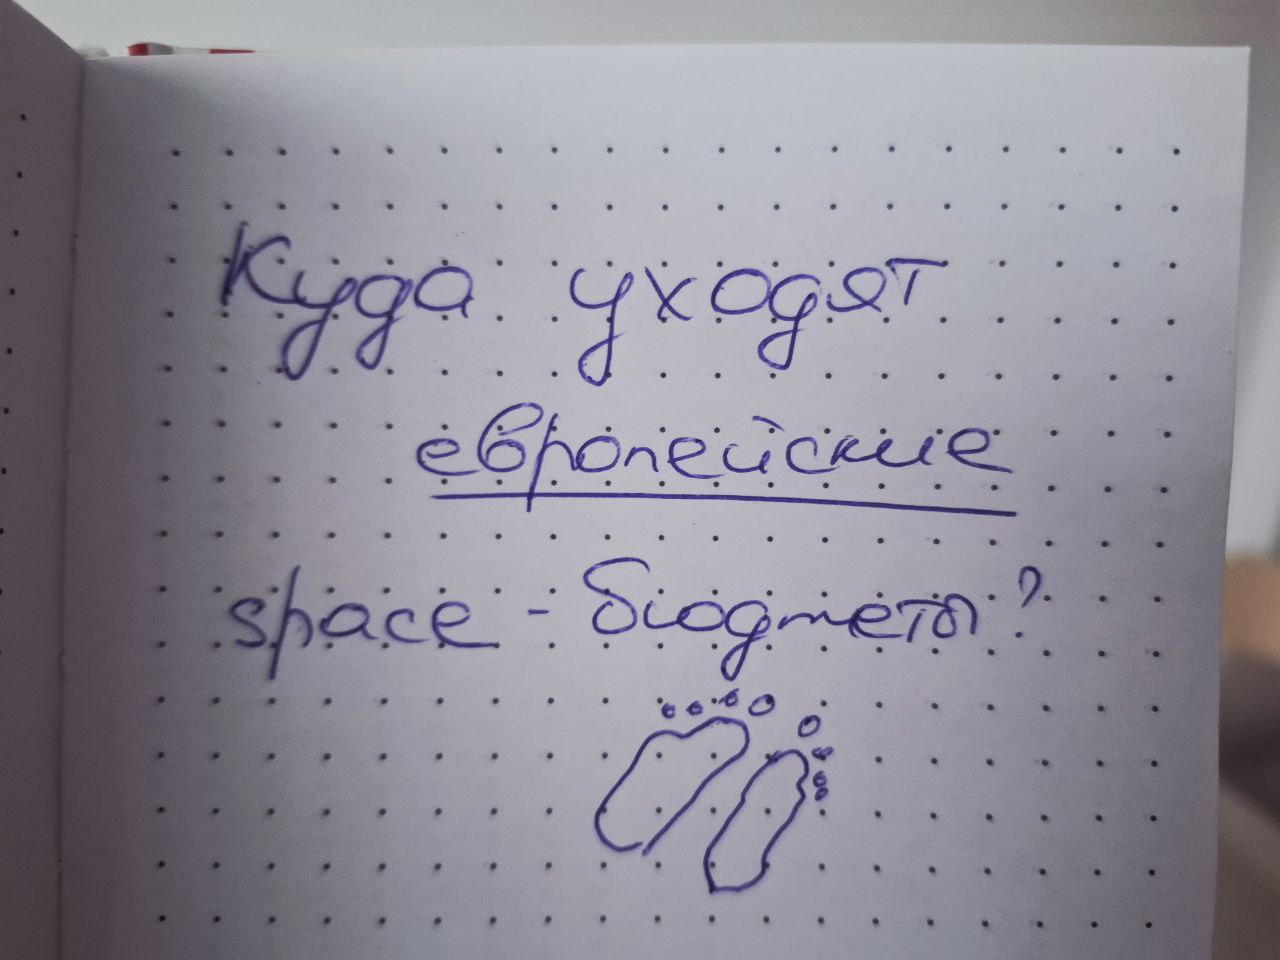 Куда уходят
европейские
space - бюджеты?